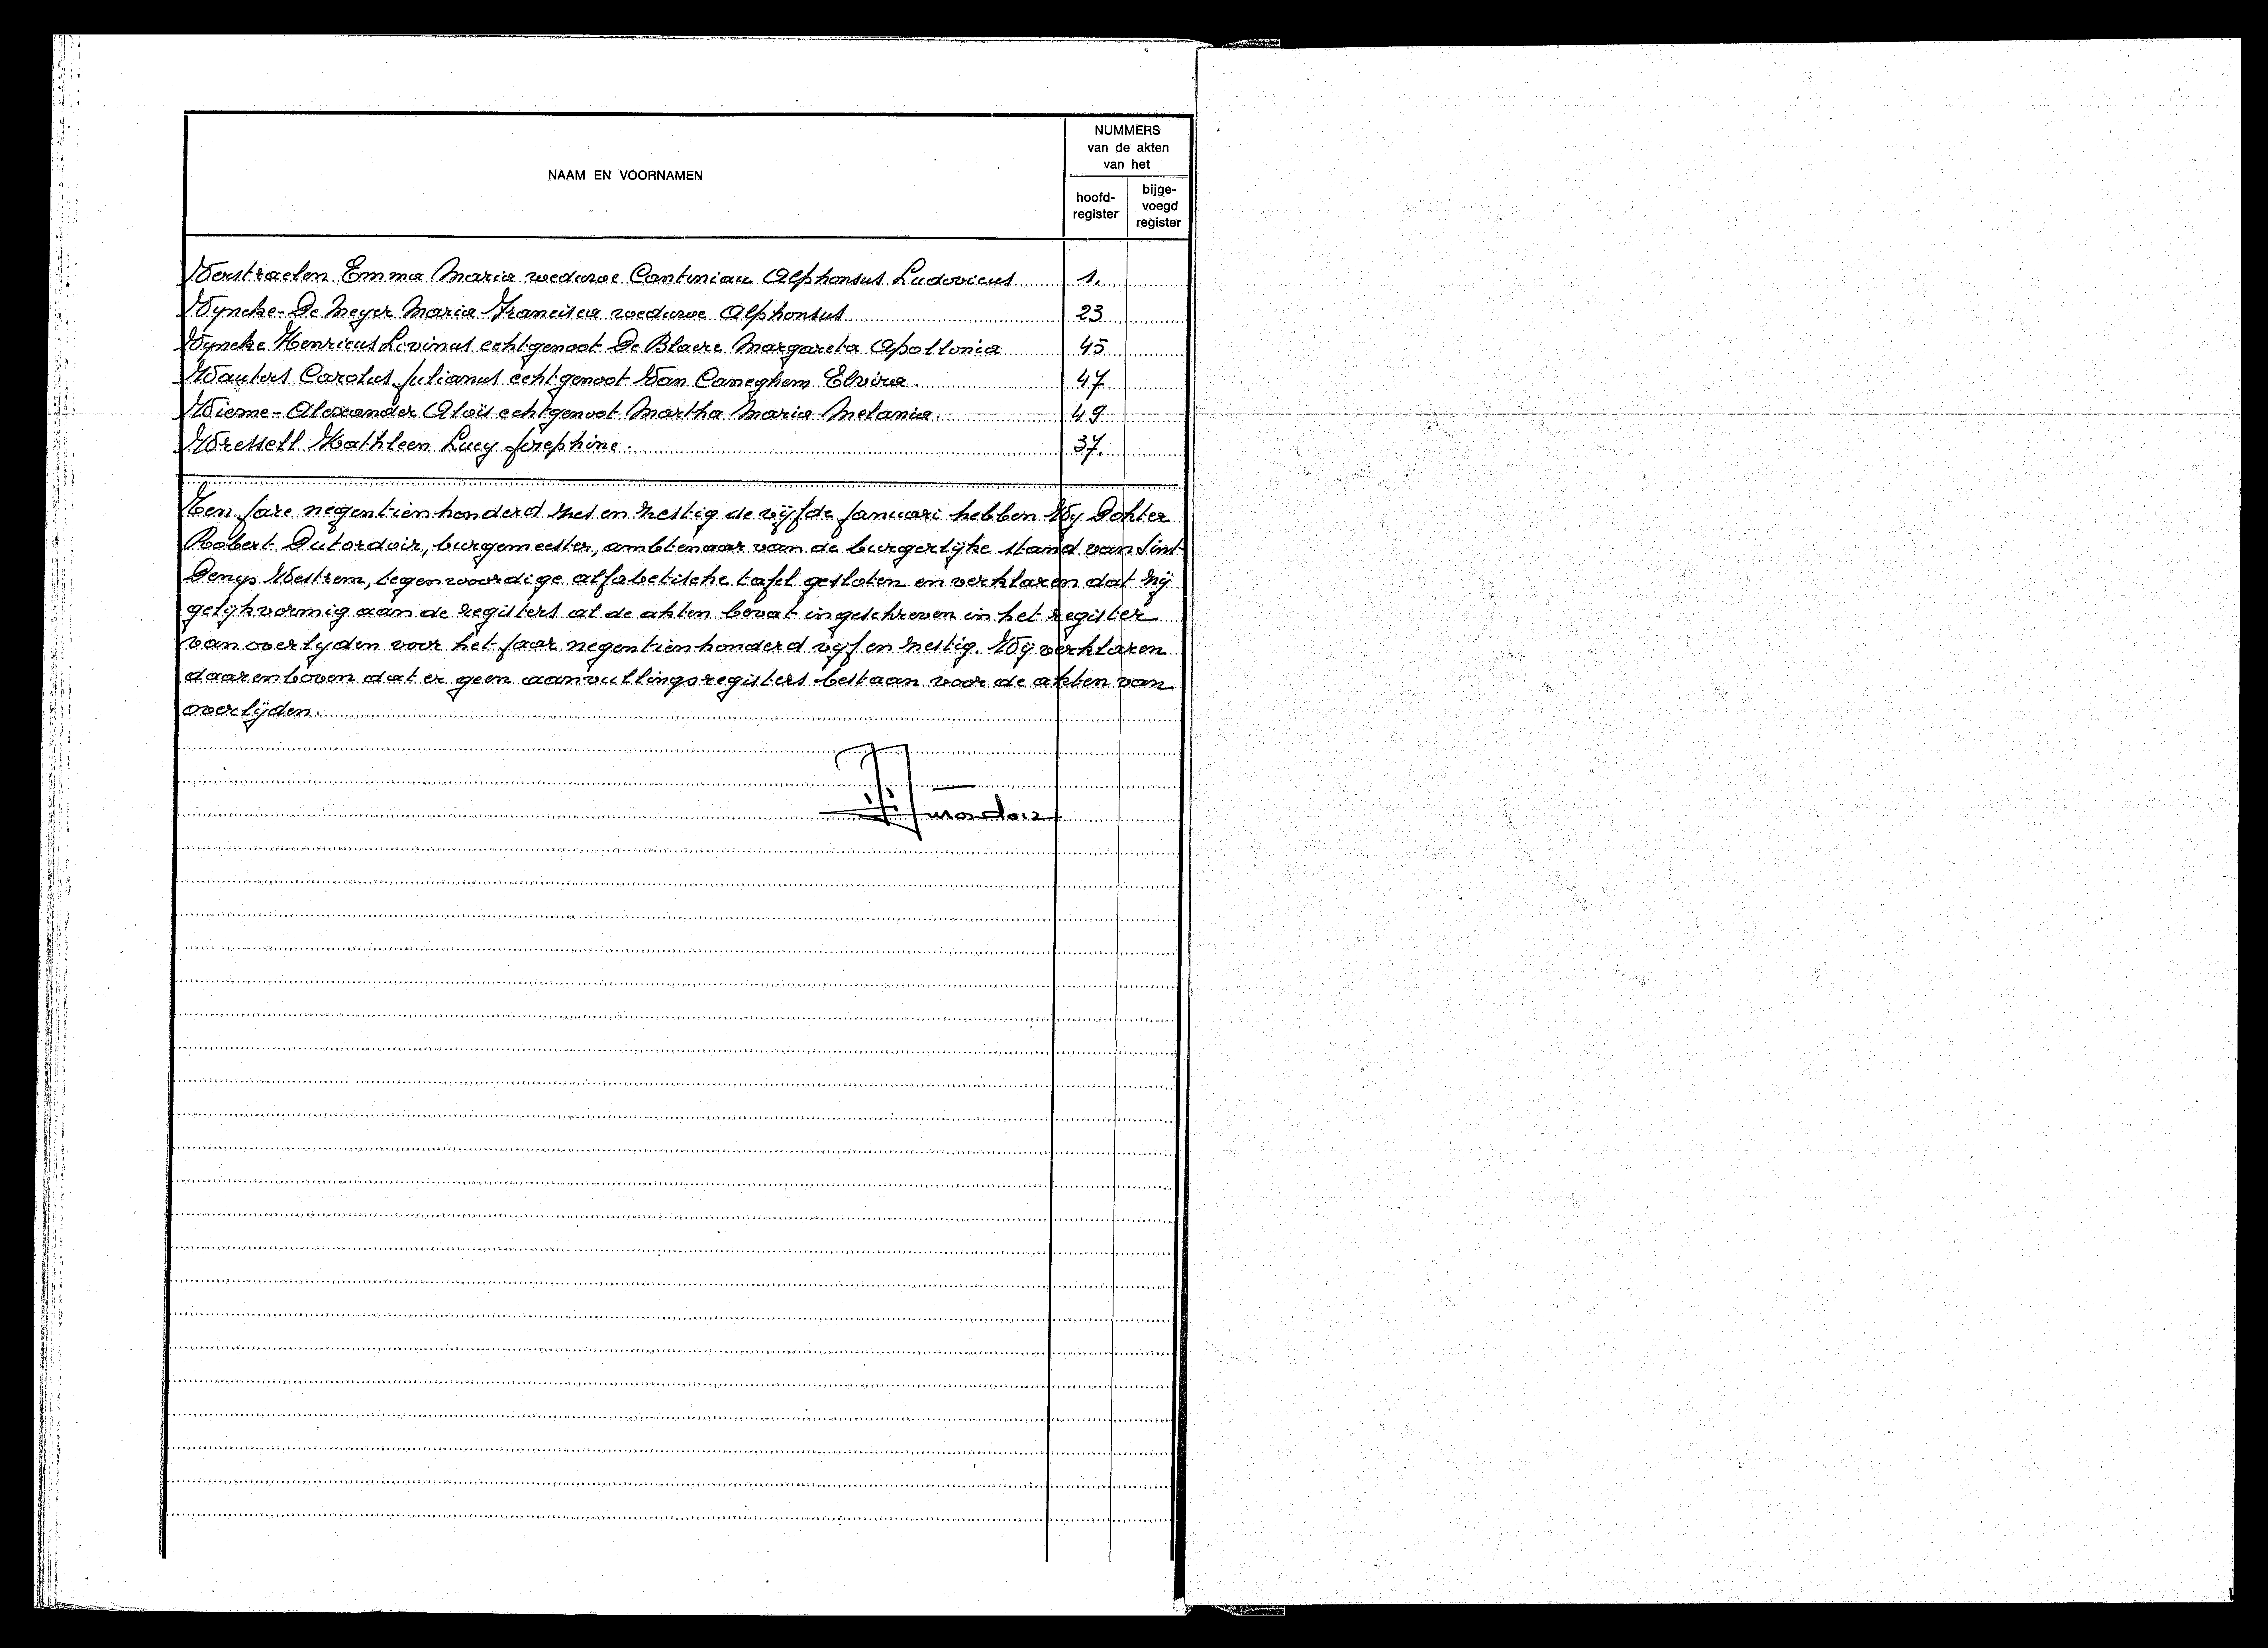 NAAM EN VOORNAMEN
NUMMERS
van de akten
van het
hoofd-
register
bijge-
voegd
register
Verstraelen Emma Maria weduwe Cantiniau Alphonsus Ludovicus 1.
Vyncke-De Meyer Maria Francisca weduwe Alphonsus 23
Vyncke Henricus Livinus echtgenoot De Blaere Margareta Apollonia 45
Wauters Carolus Julianus echtgenoot Van Caneghem Elvira. 47
Wieme-Alexander Aloïs echtgenoot Martha Maria Melania. 49
Wressell Kathleen Lucy Josephine. 37.
Ten Jare negentienhonderd zes en zestig de vijfde Januari hebben Wy Dokter
Robert Dutordoir, burgemeester, ambtenaar van de burgerlijke stand van Sint
Denys Westrem, tegenwoordige alfabetische tafel gesloten en verklaren dat zij
gelijkvormig aan de registers al de akten bevat ingeschreven in het register
van overlyden voor het Jaar negentienhonderd vijf en zestig. Wij verklaren
daarenboven dat er geen aanvullingsregisters bestaan voor de akten van
overlijden.